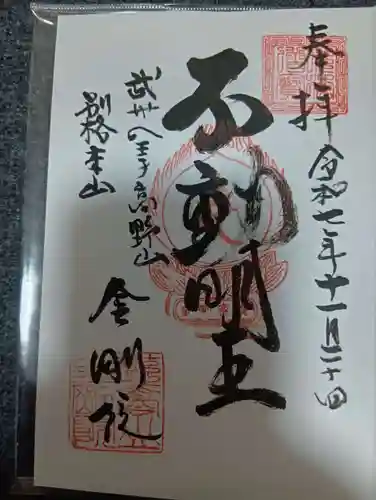 奉拝
令和七年十一月二十四日
不動明王
武州八王子高野山
別格本山
金剛院